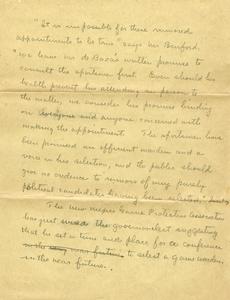 "It is impossible for these rumored
appointments to be true" says Mr Burford.
"We have Mr de Baca's written promise to
consult the sportsmen first. Even should his
health prevent his attending in person to
the matter, we consider his promise binding
on everyone and anyone concerned with
making the appointment. The sportsmen have
been promised an efficient warden and a
voice in his selection, and the public should
give no credence to rumors of any purely
political candidate having been selected."
The New Mexico Game Protective Association
has just wired the governor-elect suggesting
that he set a time and place for a conference
in the near future to select a Game Warden
in the near future.